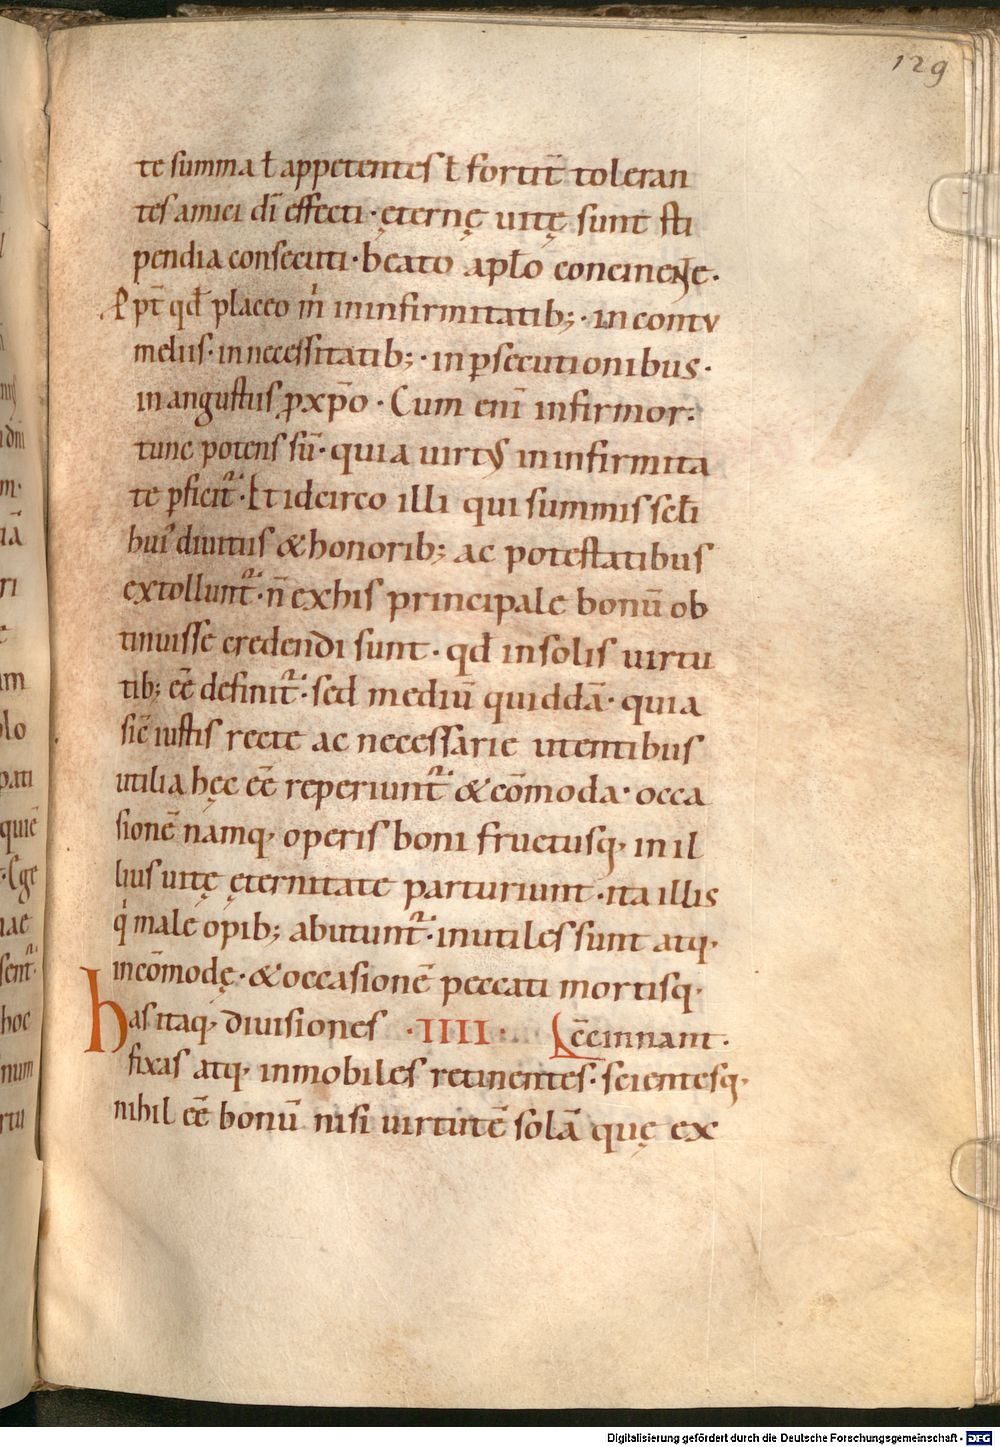 129
te summa ł appetentes ł fortit̄ toleran
tes amici dī effecti · ęternę uitę sunt sti
pendia consecuti · beato apło concinente ·
Ppt̄ qđ placeo m̄ in infirmitatib; · in contu
meliis · in necessitatib; · in psecutionibus ·
in angustiis p xp̄o · Cum enī infirmor ·
tunc potens sū · quia uirtus in infirmita
te pficit̄ · idcirco illi qui summis scłi
huī diuitiis & honorib; ac potestatibus
extollunt̄ · n̄ ex his principale bonū ob
tinuisse credendi sunt · qđ in solis uirtu
tib; eē definit̄ · sed mediū quiddā · quia
sic̄ iustis recte ac necessarie utentibus
utilia hęc eē reperiunt̄ & cōmoda · occa
sionē namq, operis boni fructusq, in il
lius uitę ęternitate parturiunt · ita illis
q̇ male opib; abutunt̄ · inutiles sunt atq,
incōmodę · & occasionē peccati mortisq,
has itaq, diuisiones · IIII ·
fixas atq, inmobiles retinentes · scientesq,
nihil eē bonū nisi uirtutē solā quę ex
Digitalisierung gefördert durch die Deutsche Forschungsgemeinschaft - DFG